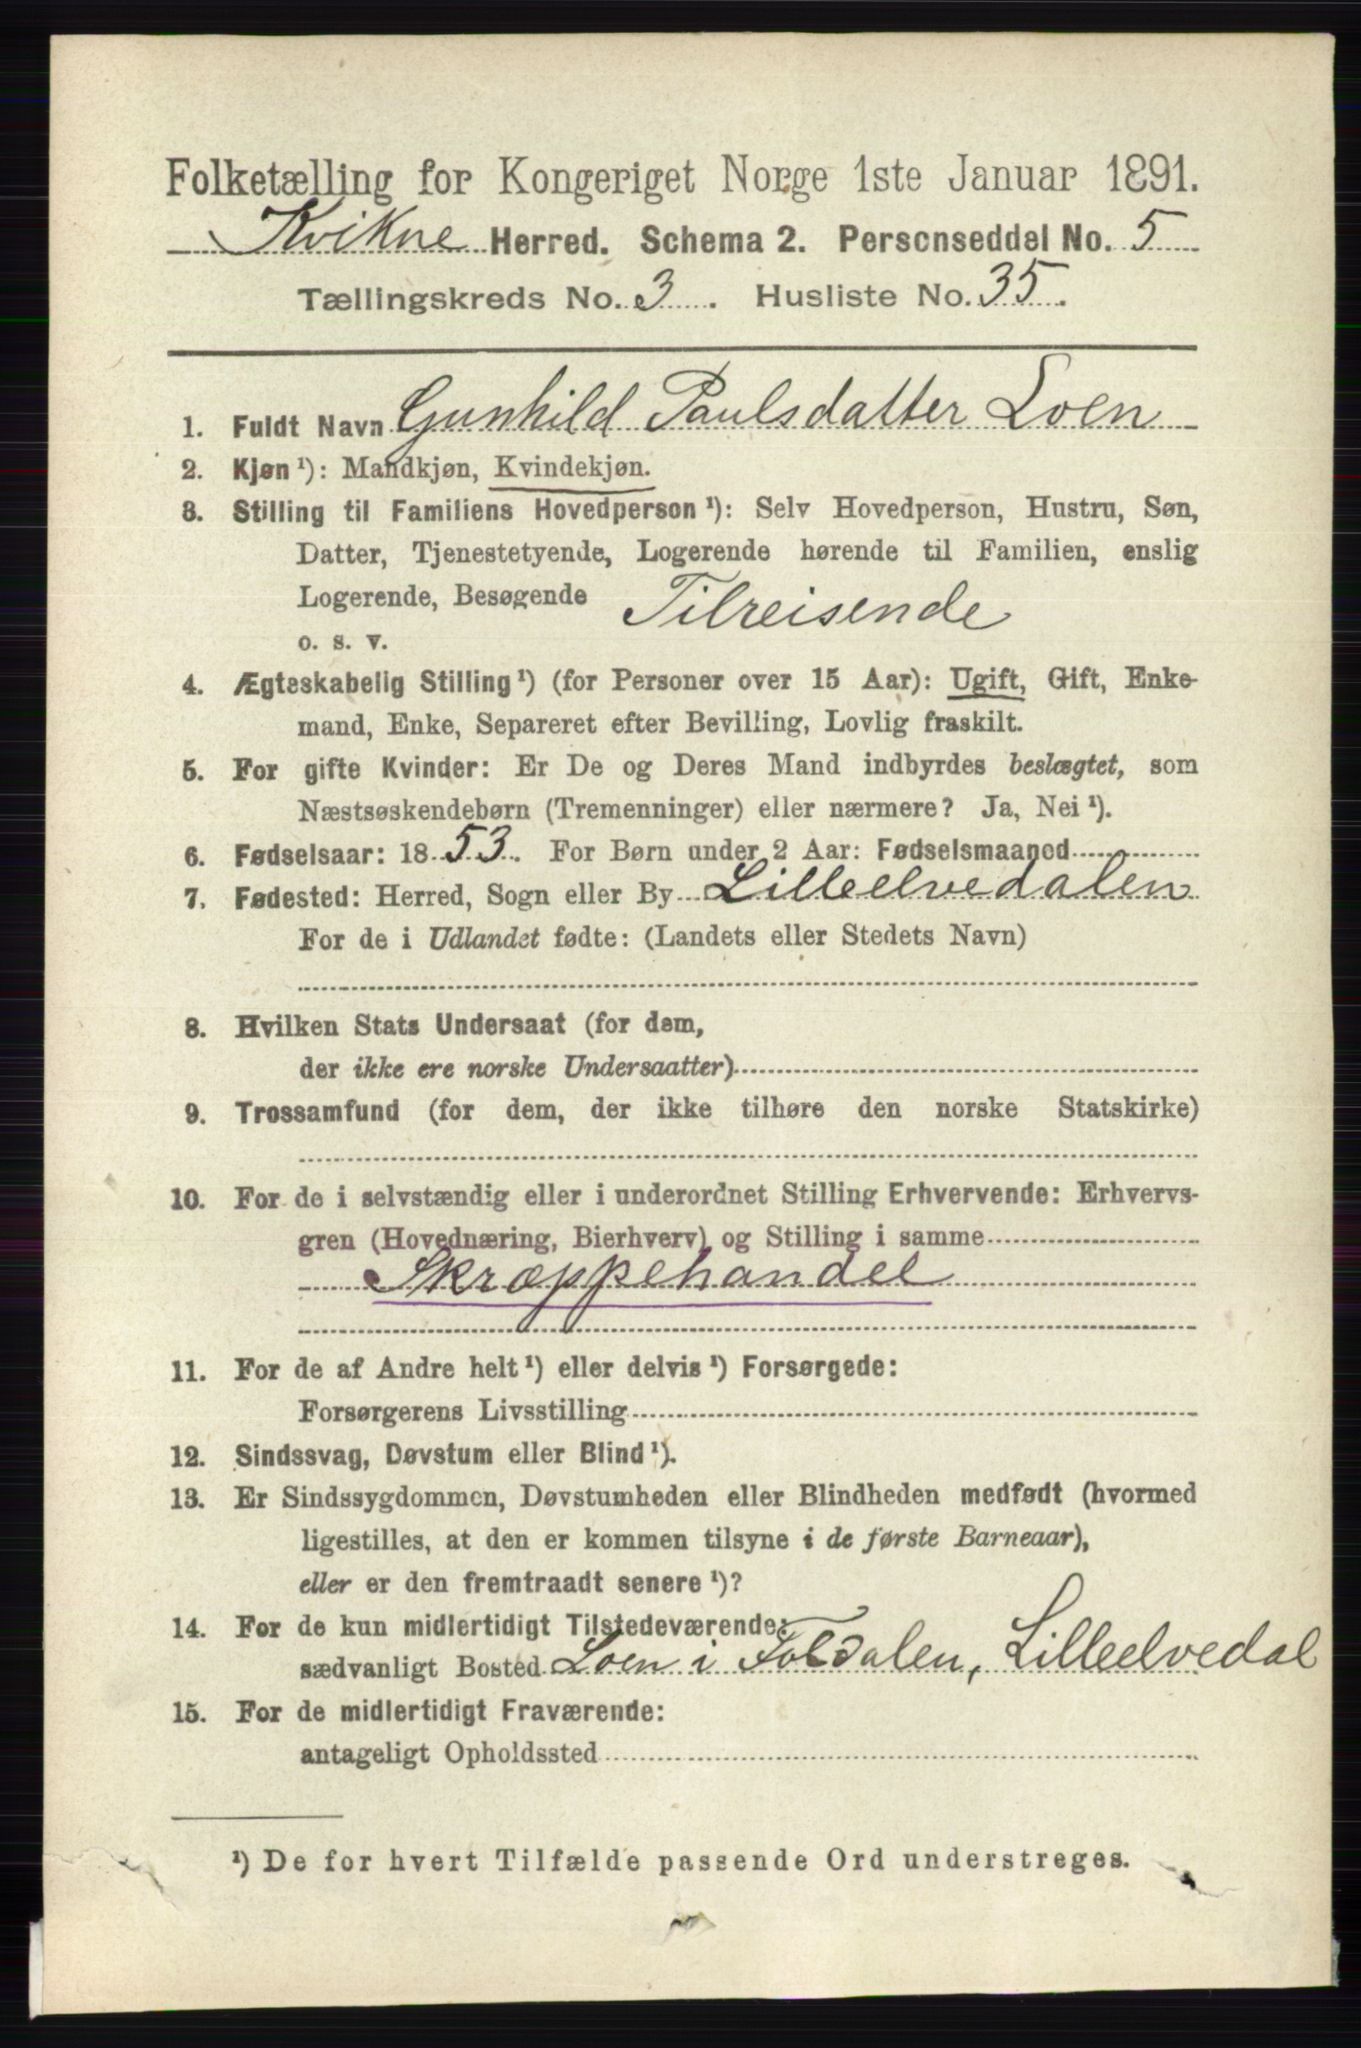 Folketælling for Kongeriget Norge 1ste Januar 1891.
Kvikne Herred. Schema 2. Personseddel No. 5
Tællingskreds No. 3. Husliste No. 35.
1. Fuldt Navn Gunhild Paulsdatter Loen
2. Kjøn ¹): Mandkjøn, Kvindekjøn.
3. Stilling til Familiens Hovedperson ¹): Selv Hovedperson, Hustru, Søn,
Datter, Tjenestetyende, Logerende hørende til Familien, enslig
Logerende, Besøgende Tilreisende
o. s. v.
4. Ægteskabelig Stilling ¹) (for Personer over 15 Aar): Ugift, Gift, Enke-
mand, Enke, Separeret efter Bevilling, Lovlig fraskilt.
5. For gifte Kvinder: Er De og Deres Mand indbyrdes beslægtet, som
Næstsøskendebørn (Tremenninger) eller nærmere? Ja, Nei ¹).
6. Fødselsaar: 1853. For Børn under 2 Aar: Fødselsmaaned
7. Fødested: Herred, Sogn eller By Lilleelvedalen
For de i Udlandet fødte: (Landets eller Stedets Navn)
8. Hvilken Stats Undersaat (for dem,
der ikke ere norske Undersaatter)
9. Trossamfund (for dem, der ikke tilhøre den norske Statskirke)
10. For de i selvstændig eller i underordnet Stilling Erhvervende: Erhvervs-
gren (Hovednæring, Bierhverv) og Stilling i samme
Skræppehandel
11. For de af Andre helt ¹) eller delvis ¹) Forsørgede:
Forsørgerens Livsstilling
12. Sindssvag, Døvstum eller Blind ¹).
13. Er Sindssygdommen, Døvstumheden eller Blindheden medfødt (hvormed
ligestilles, at den er kommen tilsyne i de første Barneaar),
eller er den fremtraadt senere ¹)?
14. For de kun midlertidigt Tilstedeværende:
sædvanligt Bosted Loen i Foldalen, Lilleelvedal
15. For de midlertidigt Fraværende:
antageligt Opholdssted
¹) De for hvert Tilfælde passende Ord understreges.